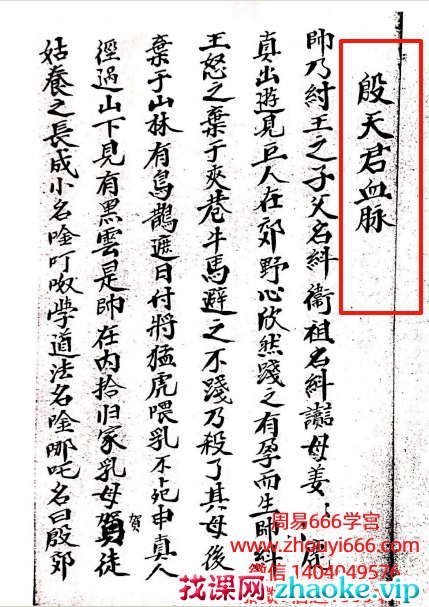 殷天君血脉
帥乃紂王之子父名紏衞祖名紏母姜
真出遊見巨人在郊野心欣然踐之有孕而生帥紏
王怒之棄于夾巷牛馬避之不踐乃殺了其母後
棄于山林有烏鵲遮日付將猛虎喂乳不死申真人
徑過山下見有黑雲是帥在内拾归家乳母賀徒
賀
姑養之長成小名唫叮呶學道法名唫哪吒名曰殷郊
周易666学宫
www.zhouyi666.com
微信1404049576
找课网/zhaoke.vip